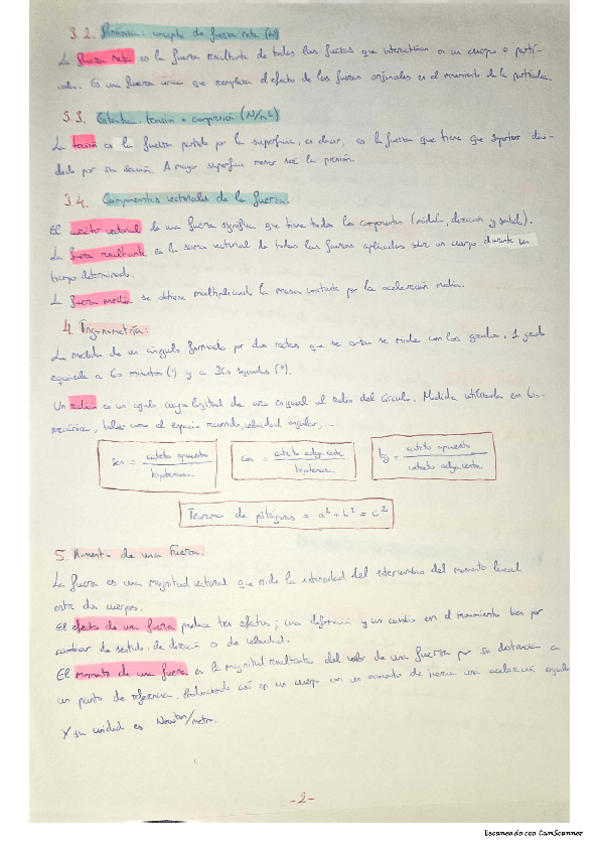 3.2. Dinámica: concepto de fuerza neta (N)
La fuerza neta es la fuerza resultante de todas las fuerzas que interactúan en un cuerpo o partí-
cula. Es una fuerza única que reemplaza el efecto de las fuerzas originales en el movimiento de la partícula.
3.3. Estática: tensión o compresión (N/m²)
La tensión es la fuerza partido por la superficie, es decir, es la fuerza que tiene que soportar divi-
dido por su sección. A mayor superficie menor será la presión.
3.4. Componentes vectoriales de la fuerza.
El carácter vectorial de una fuerza significa que tiene todos los componentes (módulo, dirección y sentido).
La fuerza resultante es la suma vectorial de todas las fuerzas aplicadas sobre un cuerpo durante un
tiempo determinado.
La fuerza media se obtiene multiplicando la masa por la aceleración media.
4. Trigonometría:
La medida de un ángulo formado por dos rectas que se cortan se mide con los grados, 1 grado
equivale a 60 minutos (') y a 360 segundos (").
Un radián es un ángulo cuya longitud de arco es igual al radio del círculo. Medida utilizada en bio-
mecánica, tales como el espacio recorrido, velocidad angular,...
sen = cateto opuesto / hipotenusa
cos = cateto adyacente / hipotenusa
tg = cateto opuesto / cateto adyacente
Teorema de pitágoras = a² + b² = c²
5. Momento de una Fuerza.
La fuerza es una magnitud vectorial que mide la intensidad del intercambio del momento lineal
entre dos cuerpos.
El efecto de una fuerza produce tres efectos; una deformación y un cambio en el movimiento bien por
cambiar de sentido, de dirección o de velocidad.
El momento de una fuerza es la magnitud resultante del valor de una fuerza por su distancia a
un punto de referencia. Produciendo así en un cuerpo con un momento de inercia una aceleración angular
y su unidad es Newton/metro.
-2-
Escaneado con CamScanner